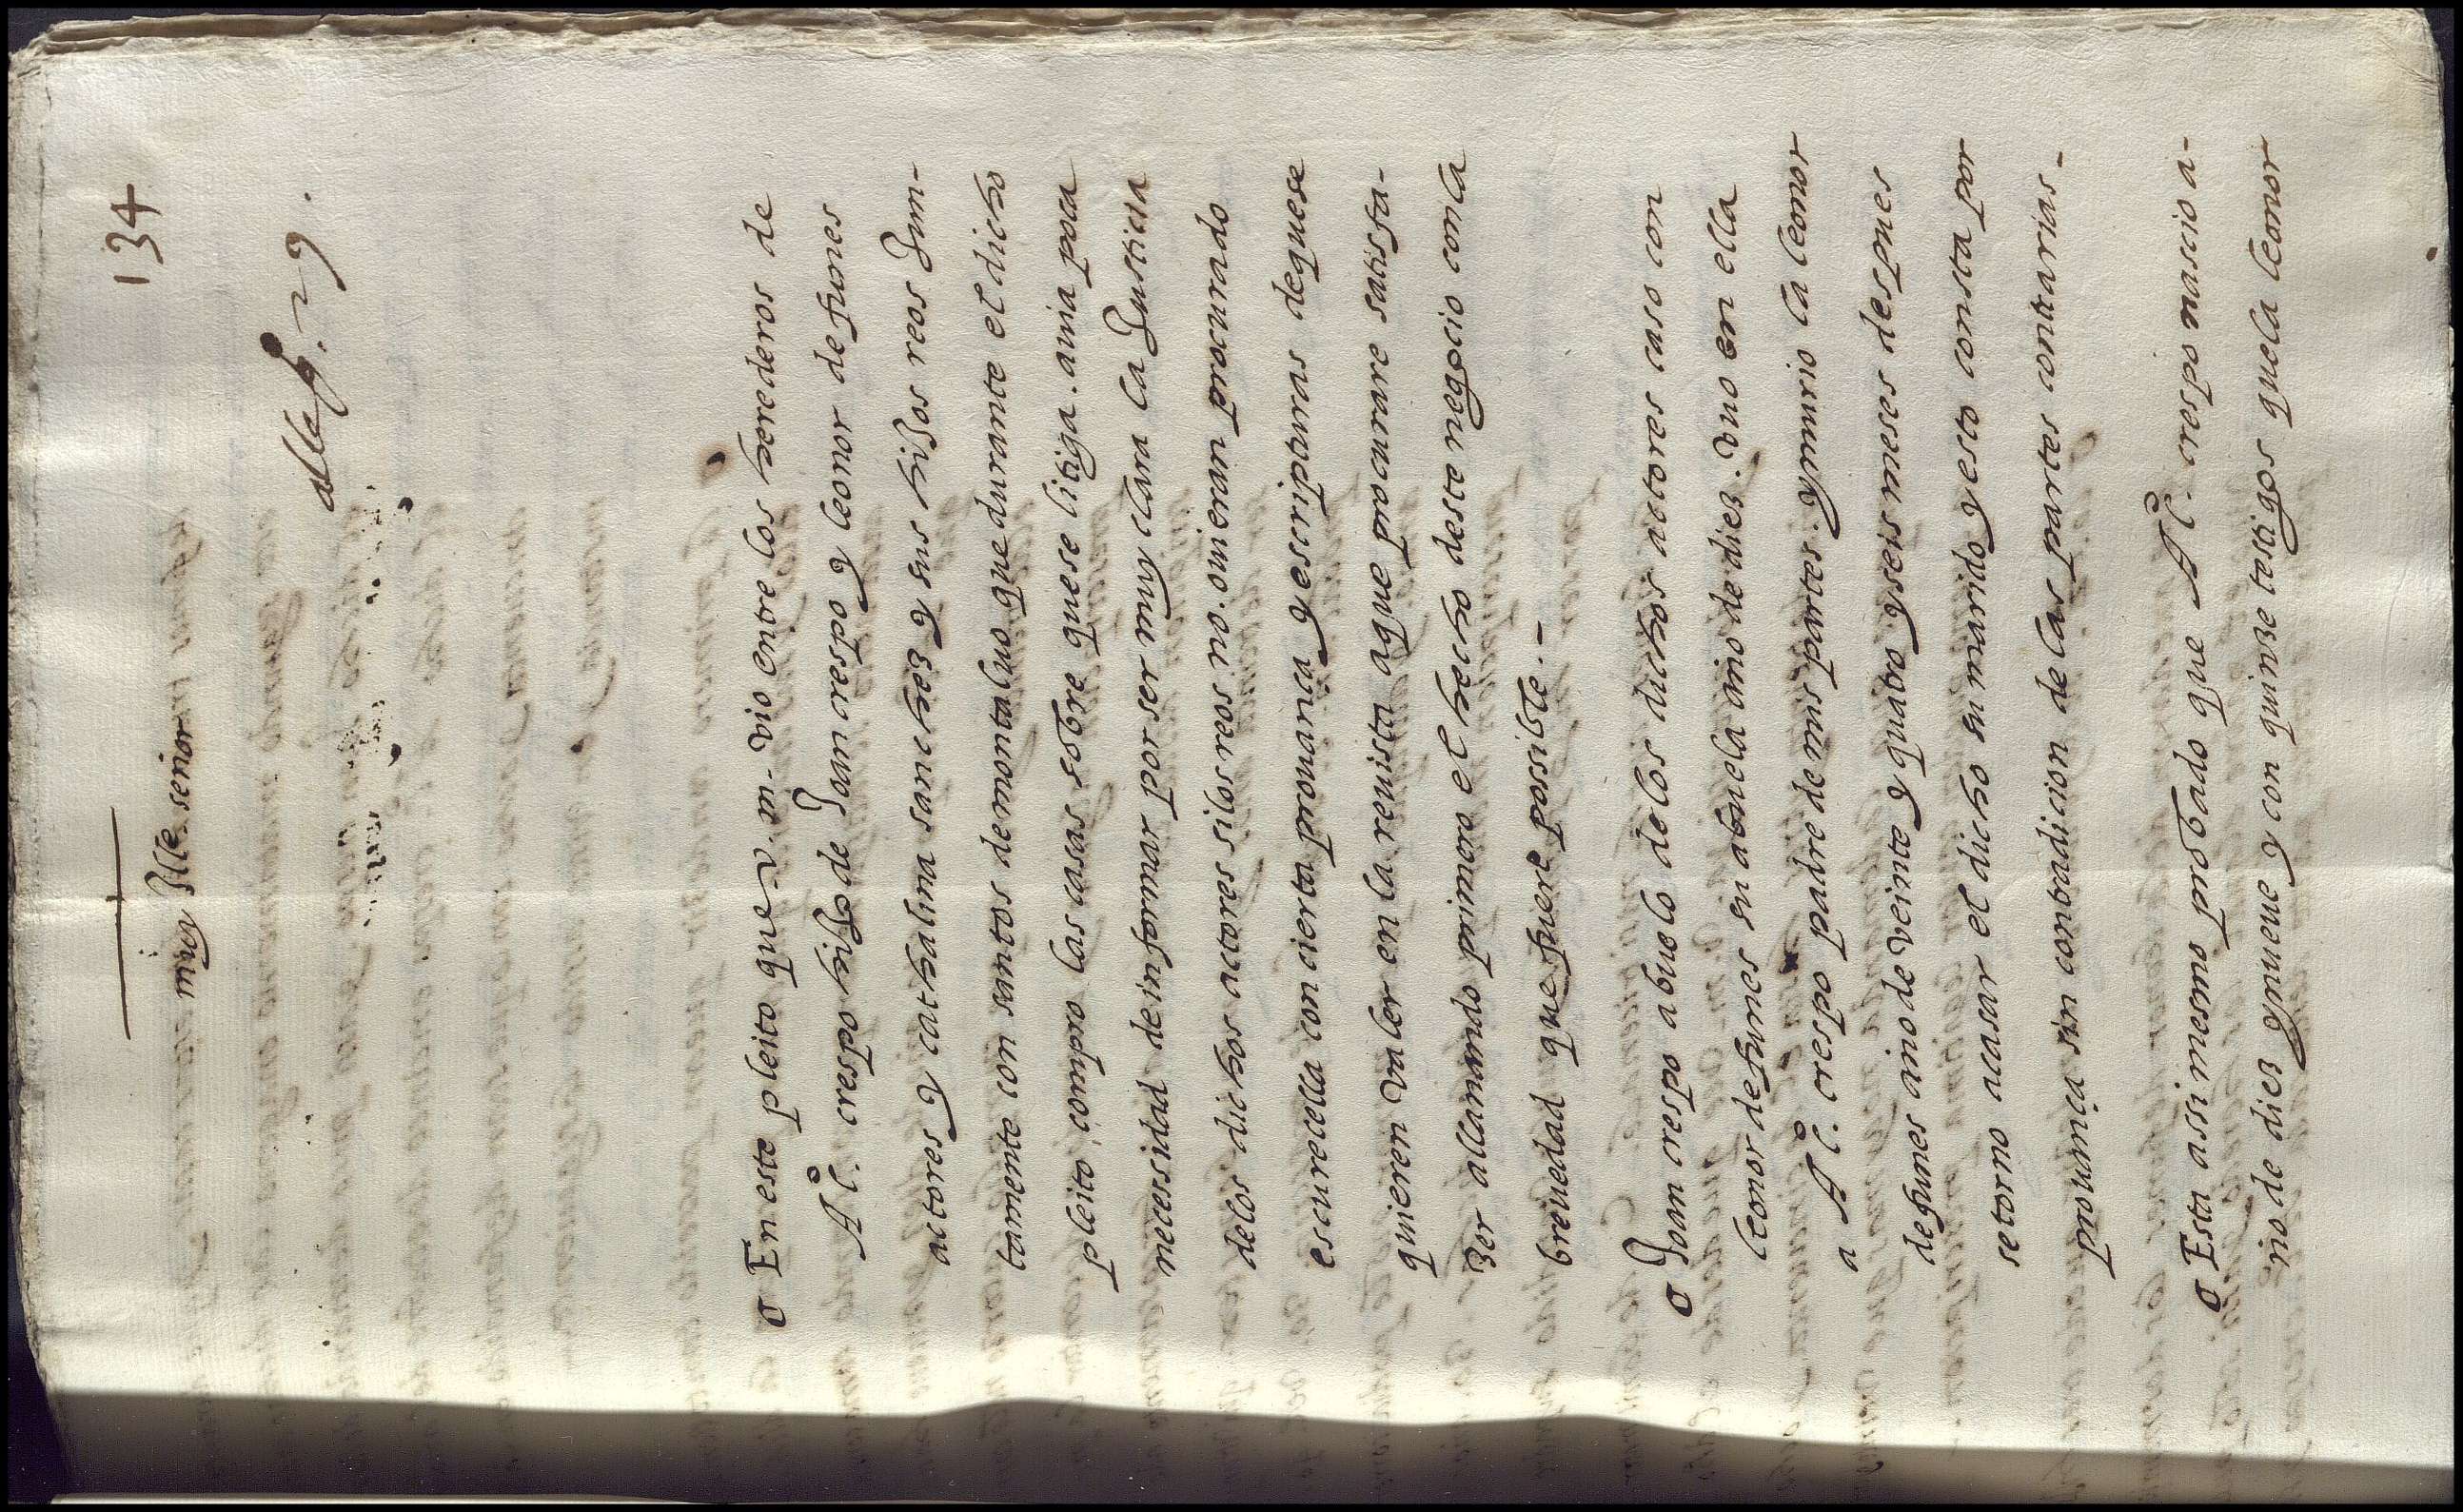 134
muy Ille. señor
alleg. 29.
σ En este pleito que v. m. vio entre los herederos de
Al.º crespo hijo de Joan crespo y leonor de funes
actores y cathalina sanchez y sus hijos reos Jun-
tamente con santos de montaluo que durante el dicho
pleito, compro las casas sobre que se litiga. auia poca
necessidad de informar por ser muy clara la Justicia
delos dichos actores silos reos no. ouieran procurado
escurecella con cierta prouança y escripturas de que se
quieren valer en la reuista a que procurare satisfa-
zer allanando primero el hecho deste negocio con la
breuedad que fuere possible. -
σ Joan crespo abuelo delos dichos actores caso con
leonor de funes su abuela año de diez. vuo en ella
a Al.º crespo padre de mis partes. y murio la leonor
de funes año de veinte y quatro y seis meses despues
se torno acasar el dicho su marido y esto consta por
prouança sin contradicion de las partes contrarias -
σ Esta assi mesmo probado que Al.º crespo nascio a-
ño de diez y nueue y con quinze testigos que la leonor